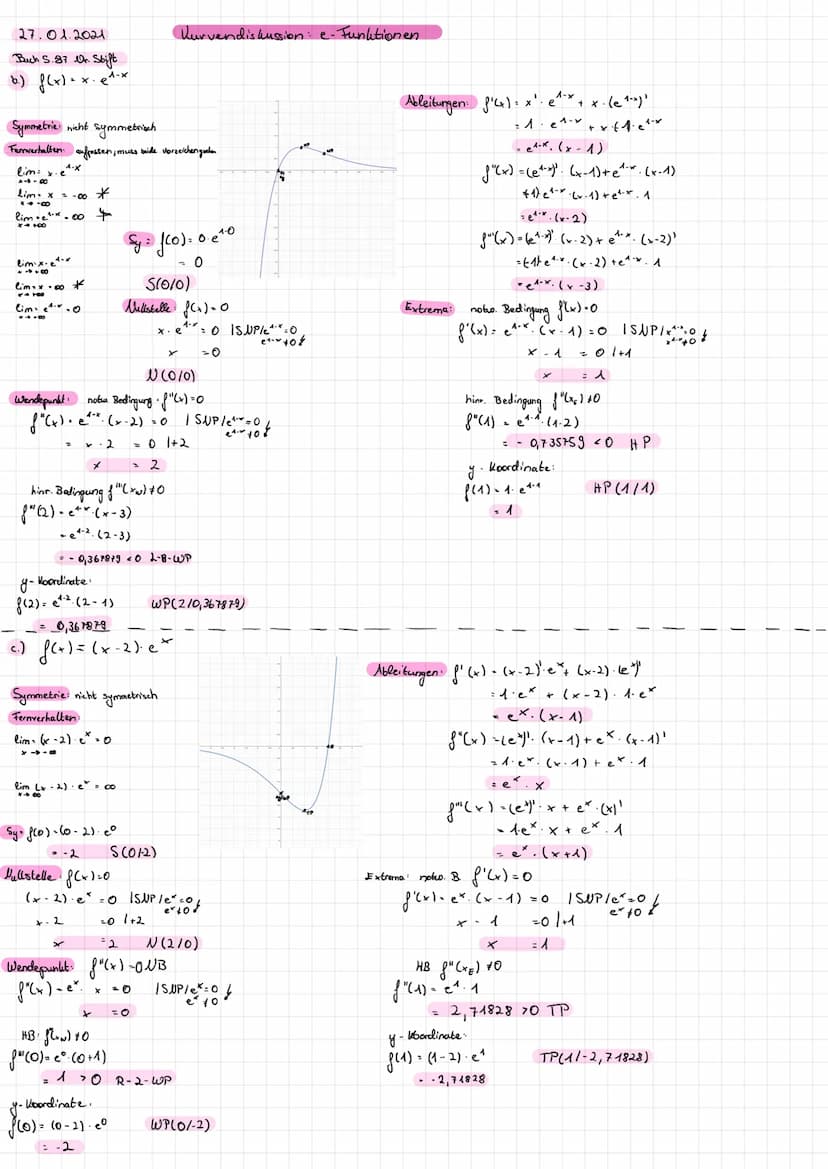 27.01.2021
Kurvendiskussion: e-Funktionen
Buch S.87 Nr. 5bif
b.) f(x) = x · e^1-x
Symmetrie: nicht symmetrisch
Fernverhalten: aufpassen, muss beide Vorzeichen geben
lim= x · e^1-x
x→-∞
lim= x = -∞
x→-∞
lim= e^1-x = ∞
x→+∞
lim= x · e^1-x
x→+∞
lim= x = ∞
x→+∞
lim= e^1-x = 0
x→+∞
Sy = f(0) = 0 · e^1-0
= 0
S(0/0)
Nullstelle: f(x) = 0
x · e^1-x = 0 | SNP/e^1-x = 0
e^1-x ≠ 0
x = 0
N(0/0)
Ableitungen: f'(x) = x' · e^1-x + x · (e^1-x)'
= 1 · e^1-x + x · (-1 · e^1-x
= e^1-x · (x - 1)
f''(x) = (e^1-x)' · (x-1) + e^1-x · (x-1)
(-1) e^1-x · (x-1) + e^1-x · 1
= e^1-x · (x-2)
f'''(x) = (e^1-x)' · (x-2) + e^1-x · (x-2)'
= (-1) e^1-x · (x-2) + e^1-x · 1
= e^1-x · (x-3)
Extrema: notw. Bedingung f'(x) = 0
f'(x) = e^1-x · (x-1) = 0 | SNP/e^1-x = 0
e^1-x ≠ 0
x - 1 = 0 | +1
x = 1
hinr. Bedingung f''(xE) ≠ 0
f''(1) = e^1-1 · (1-2)
= - 0,735759 < 0 HP
y-Koordinate:
f(1) = 1 · e^1-1
= 1
HP(1/1)
Wendepunkt: notw. Bedingung f''(x) = 0
f''(x) = e^1-x · (x-2) = 0 | SNP/e^1-x = 0
e^1-x ≠ 0
= x - 2 = 0 | +2
x = 2
hinr. Bedingung f'''(xw) ≠ 0
f'''(2) = e^1-x · (x-3)
= e^1-2 · (2-3)
= - 0,367879 < 0 L-R-WP
y-Koordinate:
f(2) = e^1-2 · (2-1)
= 0,367879
WP(2/0,367879)
c.) f(x) = (x-2) · e^x
Symmetrie: nicht symmetrisch
Fernverhalten:
lim= (x-2) · e^x = 0
x→-∞
lim (x-2) · e^x = ∞
x→∞
Sy= f(0) = (0-2) · e^0
= -2 S(0/-2)
Nullstelle: f(x) = 0
(x-2) · e^x = 0 | SNP/e^x = 0
e^x ≠ 0
x - 2 = 0 | +2
x = 2 N(2/0)
Wendepunkt: f''(x) = 0 NB
f''(x) = e^x · x = 0 | SNP/e^x = 0
e^x ≠ 0
x = 0
HB: f'''(xw) ≠ 0
f'''(0) = e^0 · (0+1)
= 1 > 0 R-L-WP
y-Koordinate:
f(0) = (0-2) · e^0
= -2
WP(0/-2)
Ableitungen: f'(x) = (x-2)' · e^x + (x-2) · (e^x)'
= 1 · e^x + (x-2) · 1 · e^x
= e^x · (x-1)
f''(x) = (e^x)' · (x-1) + e^x · (x-1)'
= 1 · e^x · (x-1) + e^x · 1
= e^x · x
f'''(x) = (e^x)' · x + e^x · (x)'
= 1 · e^x · x + e^x · 1
= e^x · (x+1)
Extrema: notw. B. f'(x) = 0
f'(x) = e^x · (x-1) = 0 | SNP/e^x = 0
e^x ≠ 0
x - 1 = 0 | +1
x = 1
HB f''(xE) ≠ 0
f''(1) = e^1 · 1
= 2,71828 > 0 TP
y-Koordinate:
f(1) = (1-2) · e^1
= -2,71828
TP(1/-2,71828)